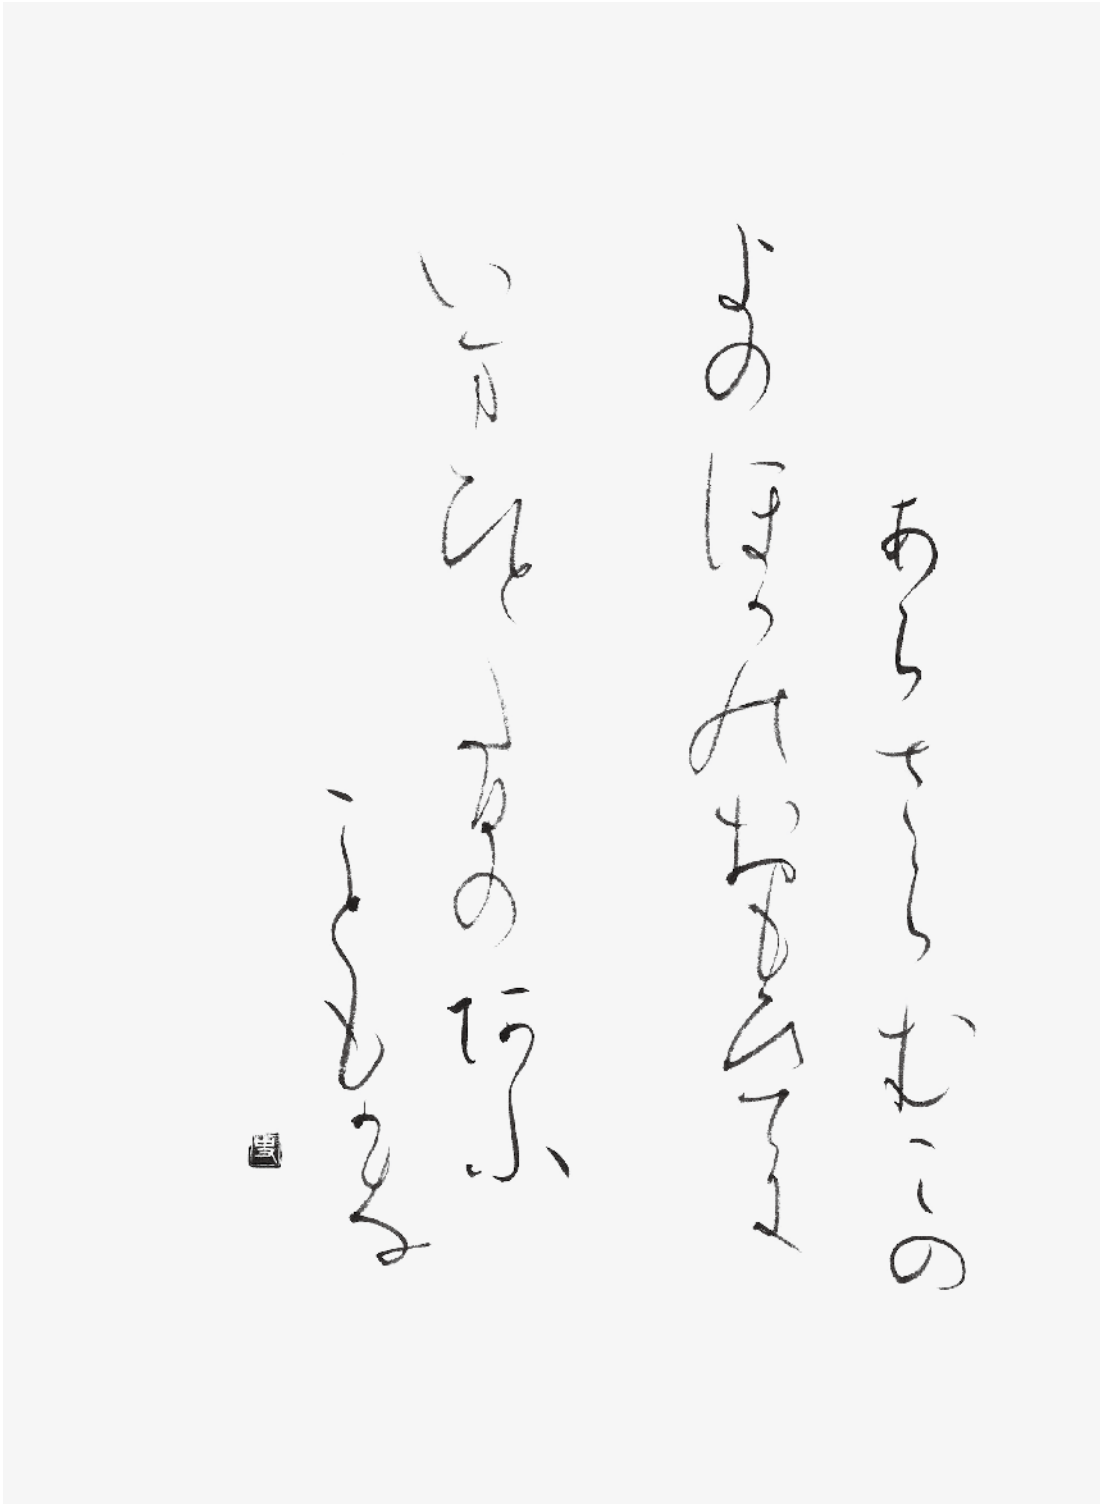 あらさらむこの
よのほかのおもひてに
いまひとたひの阿ふ
こともかな